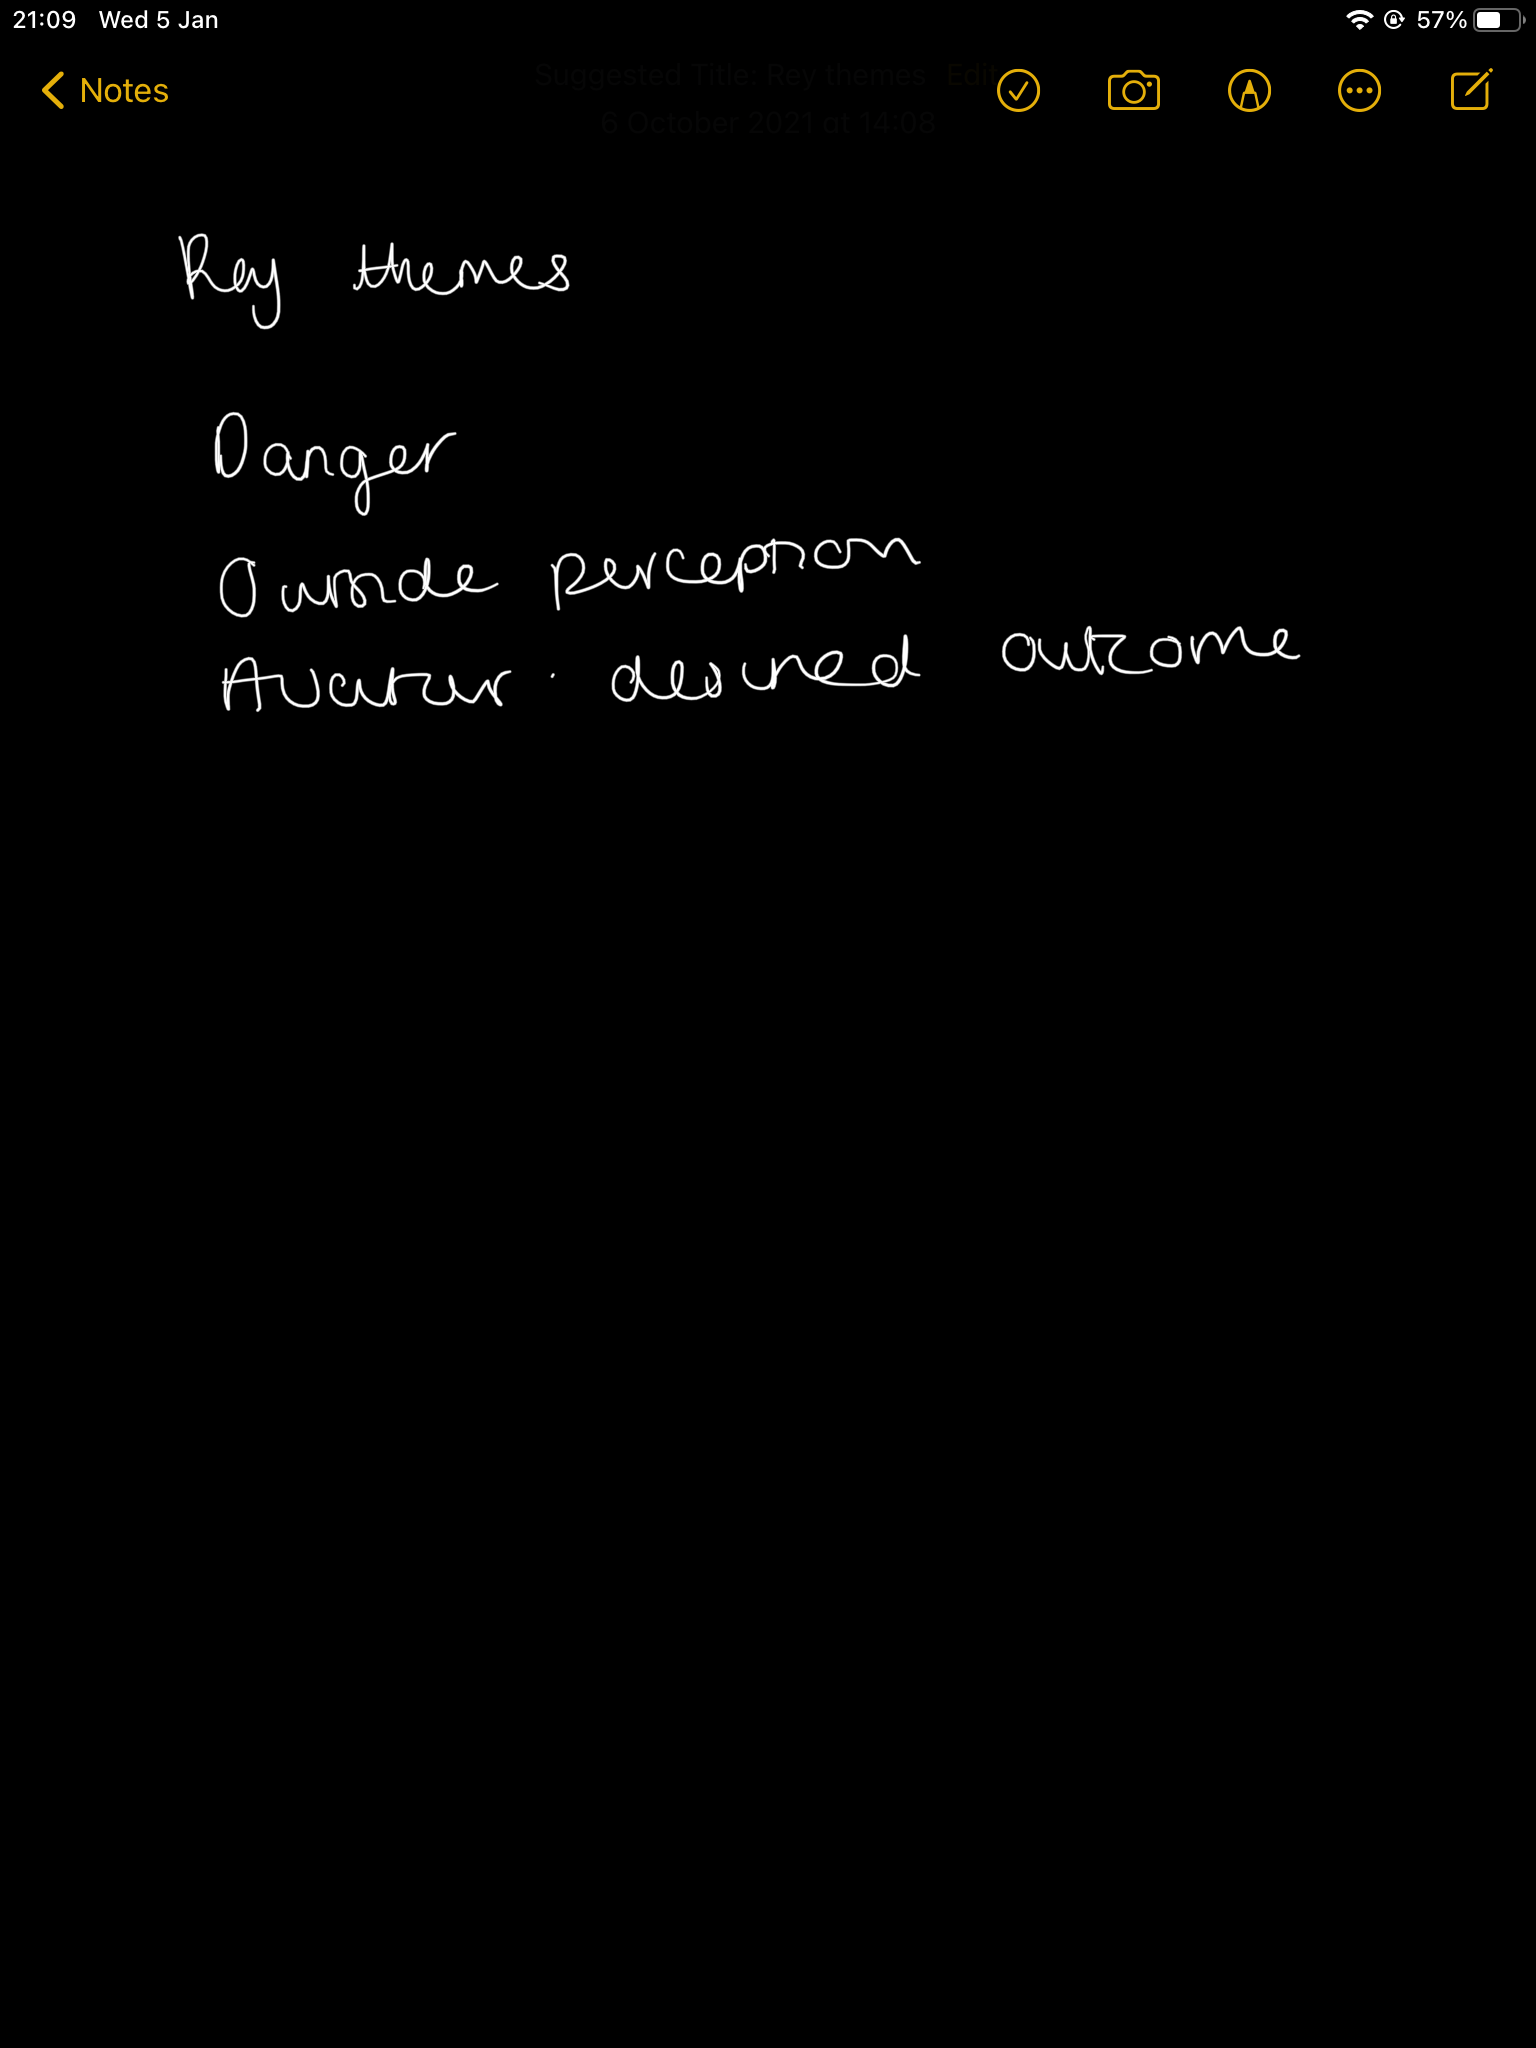 21:09 Wed 5 Jan 57%
Notes
Suggested Title: Rey themes Edit
6 October 2021 at 14:08
Key themes
Danger
Outside perception
Avatar. desired outcome